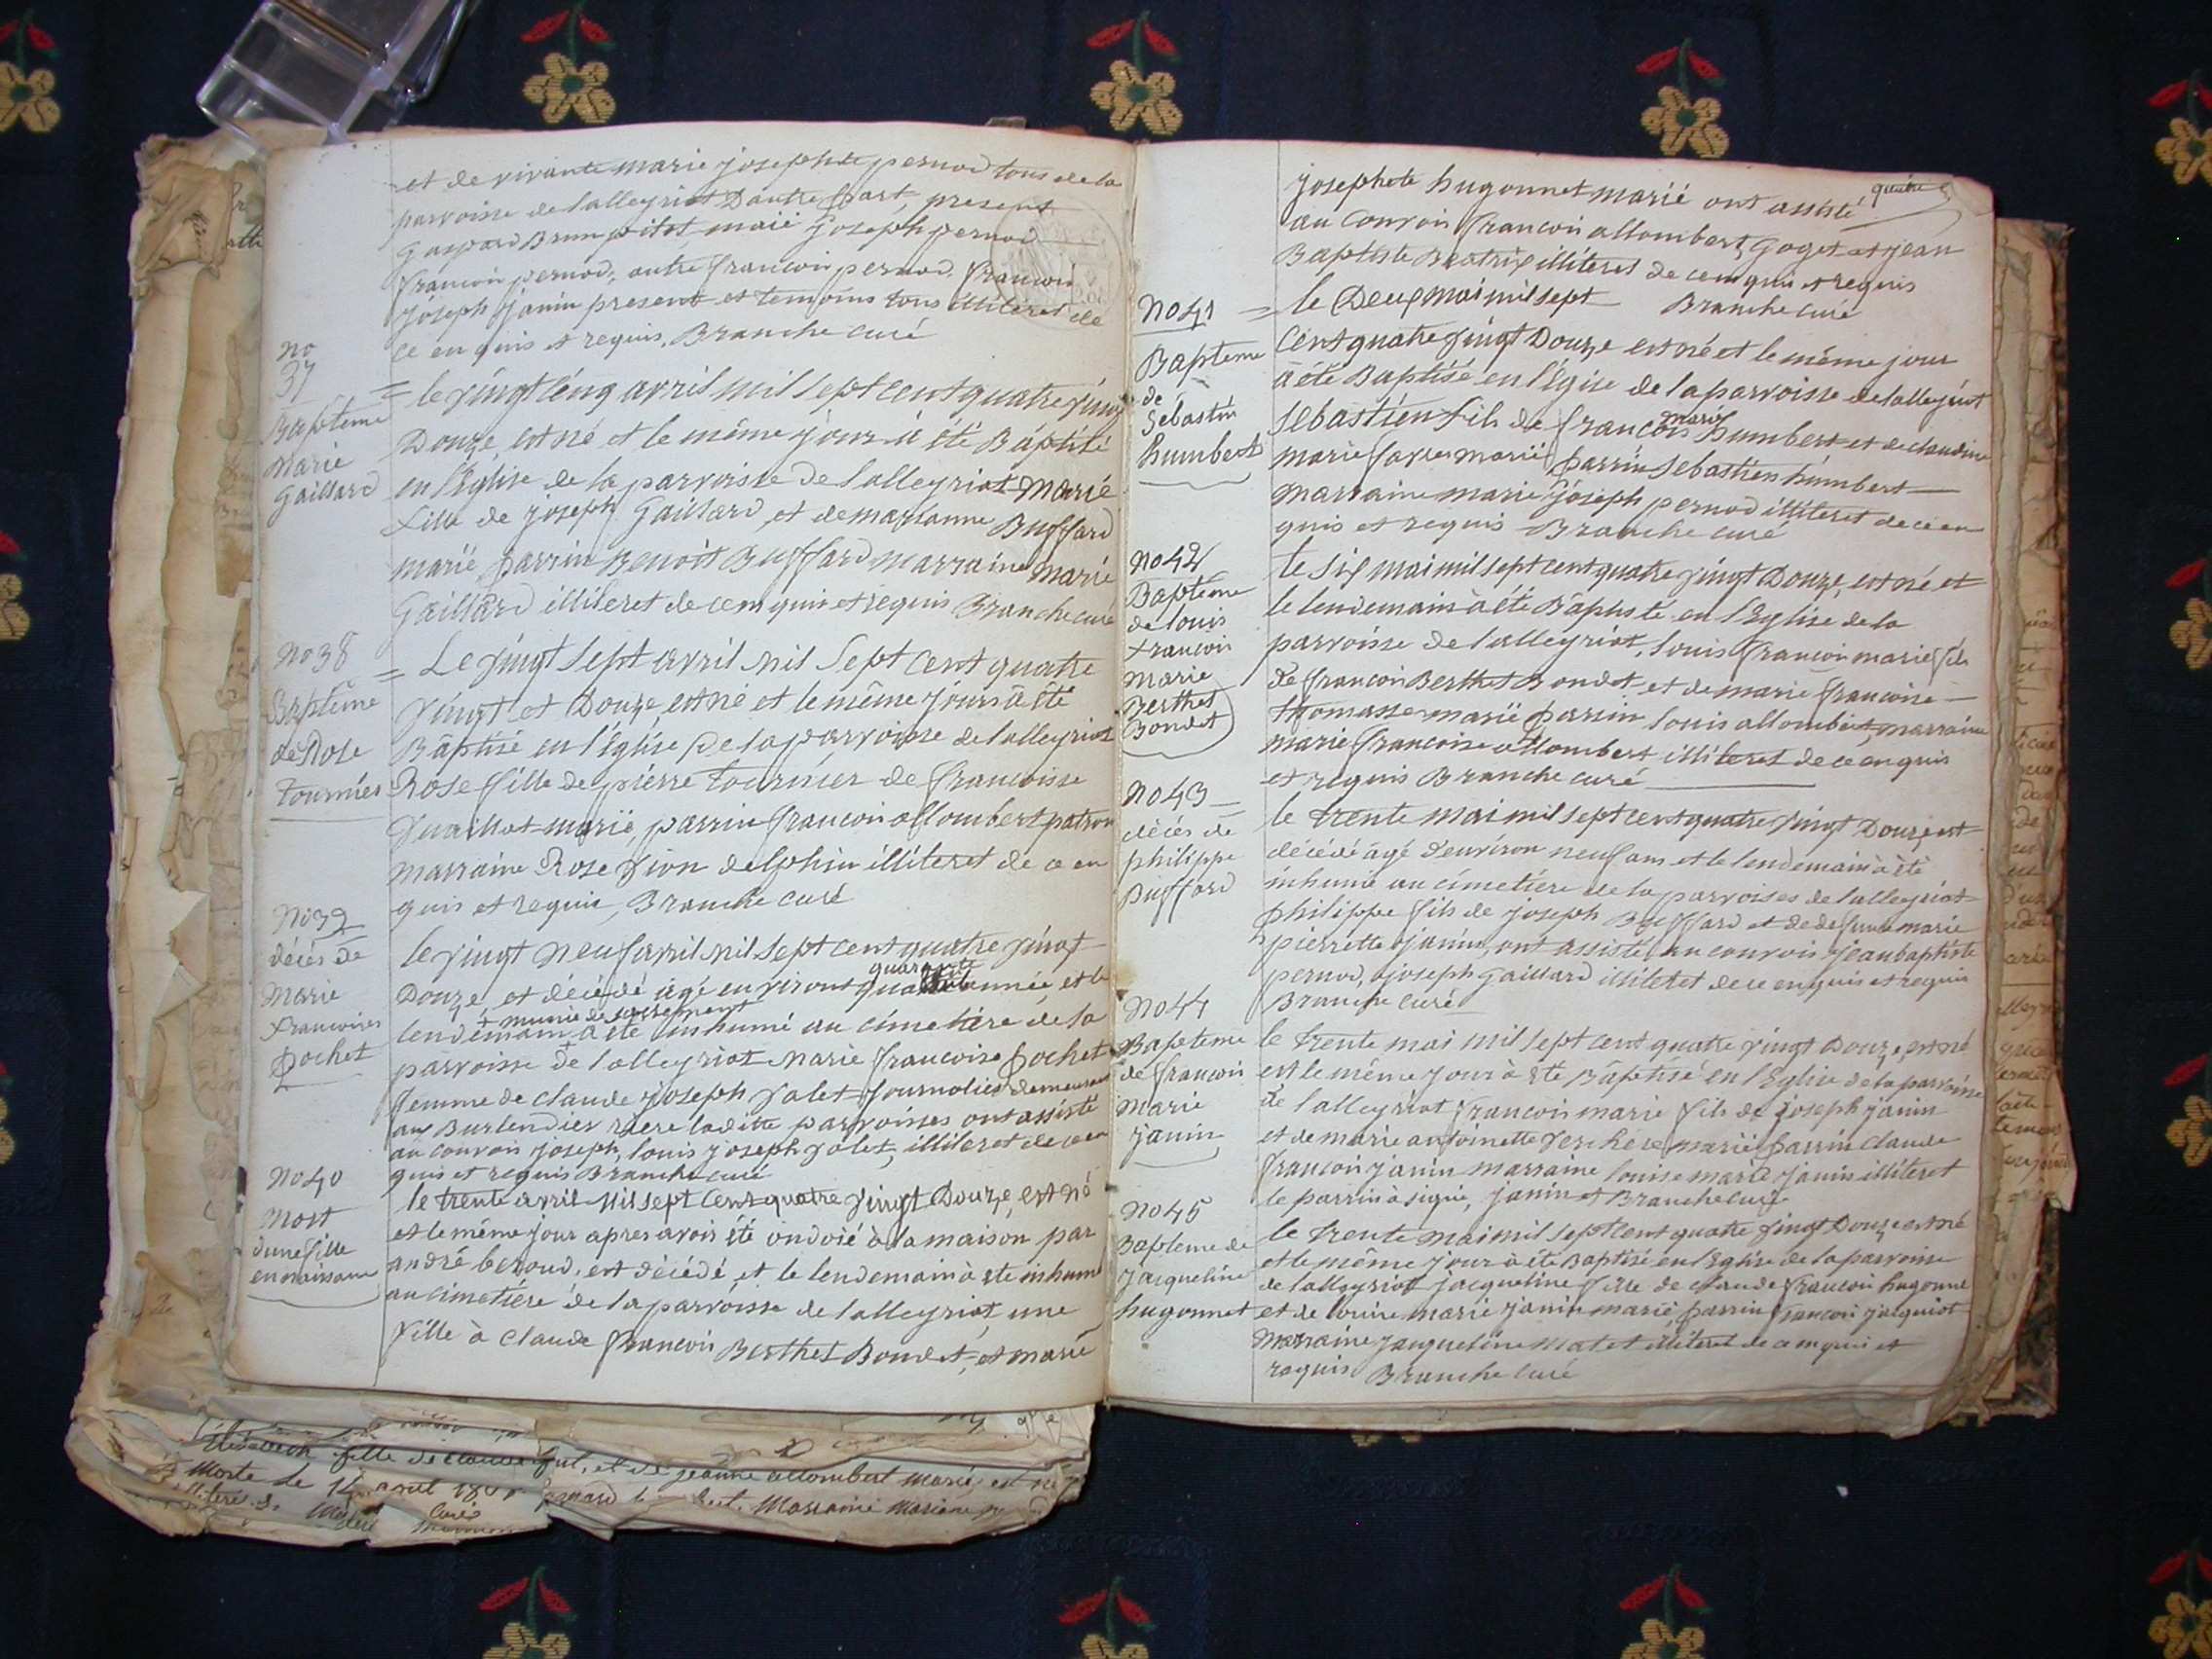 et de vivante marie josephte pernod tous de la
parroisse de lalleyriat Dautre part, present
Gaspard Brun pitot, marié joseph pernod
francois pernod, autre francois pernod, francois
joseph janin present et temoins tous illiteret de
ce en quis et requis, Branche curé
no
37
Bapteme
Marie
Gaillard
= le vingt cinq avril mil sept cent quatre ving
Douze, est né et le même jour à été Baptisé
en l'Eglise de la parroisse de lalleyriat Marie
fille de joseph Gaillard et de marianne Buffard
marié parrin Benoit Buffard marraine Marie
Gaillard illiteret de ce en quis et requis Branche curé
No 38
Baptême
de Rose
tournier
= Le vingt sept avril Mil Sept cent quatre
vingt et Douze est né et le même jours à été
Bâptisé en l'église de la parroisse de lalleyriat
Rose fille de pierre tournier de francoisse
marié, parrin francois allombert patron
marraine Rose vion delphin illiteret de ce en
quis et requis, Branche curé
No 39
décés de
Marie
francoises
pochet
le vingt neuf avril Mil sept cent quatre vingt
quarante
Douze, et décédé âgé environt année, et le
+ munie de sacrement
lendemain à été inhumé au cimetiére de la
parroisse de lalleyriat Marie francoise pochet
femme de claude joseph jalet journalier demeurant
aux Burlendier riere ladite parroisses ont assisté
au convois joseph, louis joseph jolet, illiteret de ce en
quis et requis Branche curé
No 40
Mort
dune fille
en naissance
le trente avril Mil sept cent quatre vingt Douze, est né
et le même jour apres avois été ondoié à la maison par
andré beroud, est décédé et le lendemain à ete inhumé
au cimetiére de la parroisse de lalleyriat, une
fille à claude francois Berthet Bondet, et marie
quatre
josephete hugonnet marié ont assisté
au Convois francois allombert, Goget et jean
Baptiste Beatrix illiteret de ce en quis et requis
Branche curé
No 41
Bapteme
de
Sebastin
humbert
= le Deux mai mil sept
Cent quatre vingt Douze est né et le même jour
à été Baptisé en l'Eglise de la parroisse de lalleyriat
marie
Sebastien fils de francois humbert et de claudine
marie favre marié parrin Sebastien humbert
marraine marie joseph pernod illiteret de ce en
quis et requis Branche curé
No 42
Bapteme
de louis
francois
marie
Berthet
Bondet
le Six mai mil sept cent quatre vingt Douze, est né et
le lendemain à été Bâptisté en l'Eglise de la
parroisse de lalleyriat, louis francois marie fils
de francois Berthet Bondet et de marie francoise
thomasse marié parrin louis allombert, marraine
marie francoise allombert illiteret de ce en quis
et requis Branche curé
No 43
décés de
philippe
Buffard
le trente mai mil sept cent quatre vingt Douze est
décédé âgé d'environ neuf ans et le lendemain à été
inhumé au cimetiére de la parroises de lalleyriat
philippe fils de joseph Buffard et de defunte marie
pierrette janin, ont assisté au convois jean baptiste
pernod, joseph Gaillard illiteret de ce en quis et requis
Branche curé
No 44
Bapteme
de francois
marie
janin
le trente mai mil sept cent quatre vingt Douze, est né
et le même jour à été Bâptisé en l'Eglise de la parroisse
de lalleyriat francois marie fils de joseph janin
et de marie antoinette verchere marié parrin claude
francois janin marraine louise marie janin illiteret
le parrin à signé, janin et Branche curé
No 45
Bapteme de
jacqueline
hugonnet
le trente mai mil sept cent quatre vingt Douze est né
et le même jour à été Baptisé en l'Eglise de la parroisse
de lalleyriat jacqueline fille de claude francois hugonne
et de louise marie janin marié, parrin francois jacquiot
marraine jacqueline Matet illiteret de ce en quis et
requis Branche curé
fille de claude et de jeanne allombert marié, est né
Morte le 14 avril Marraine Mariane